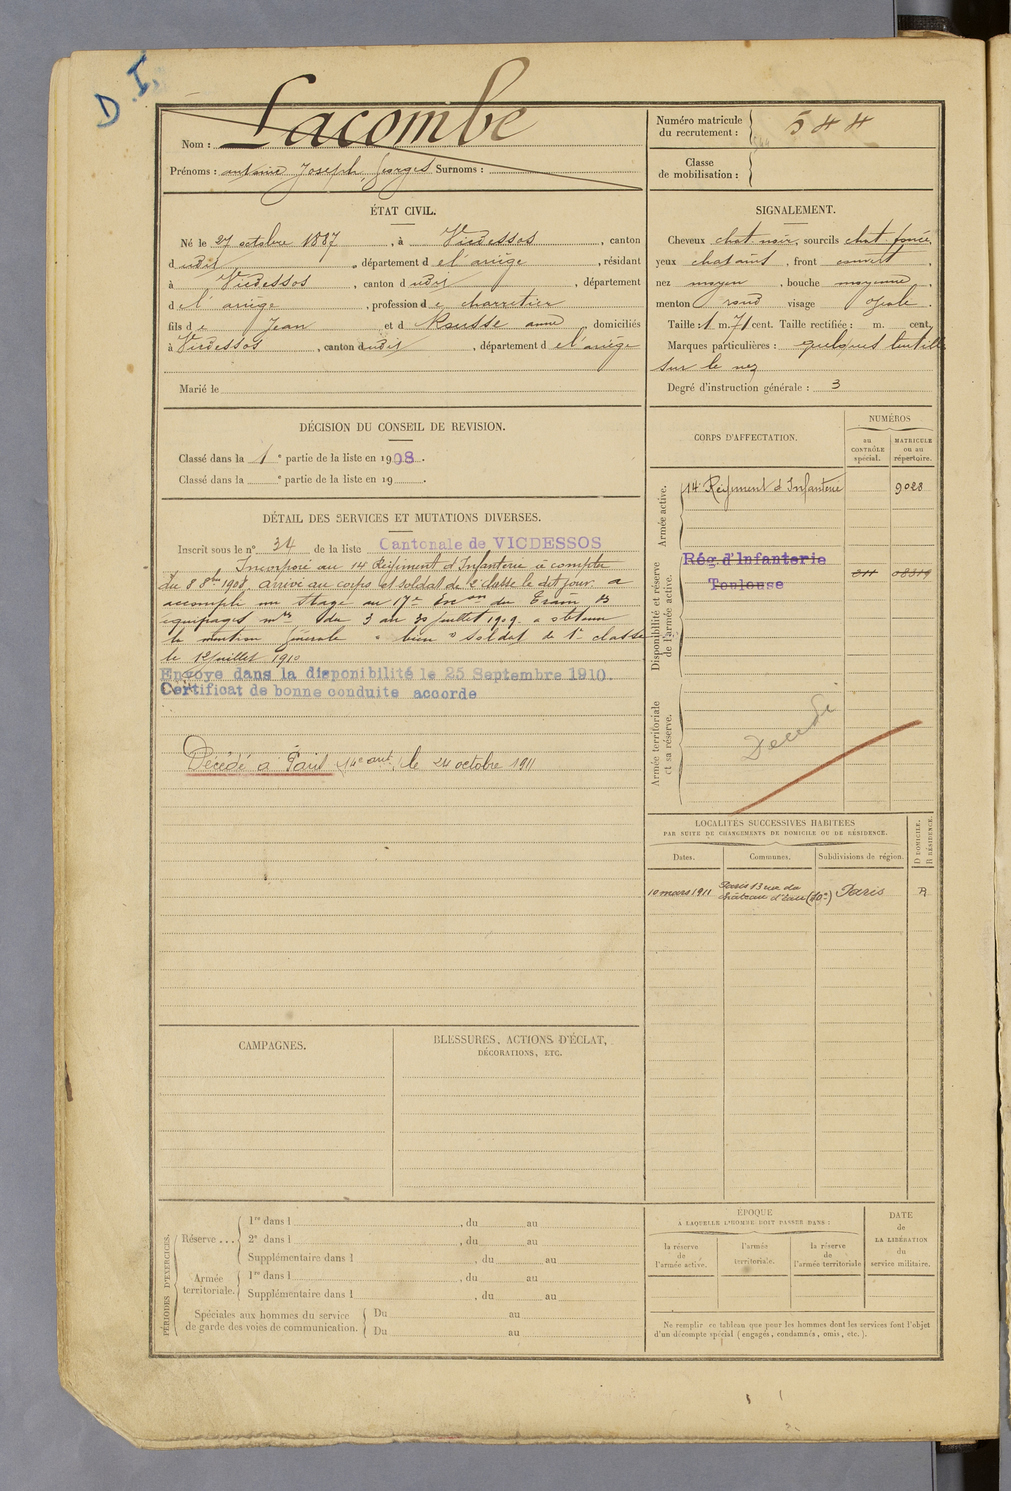 D.I.
Nom : Lacombe
Prénoms : antoine Joseph, Georges Surnoms :
Numéro matricule
du recrutement : 544
Classe
de mobilisation :
ÉTAT CIVIL.
Né le 27 octobre 1887, à Vicdessos, canton
dudit, département de l'ariège, résidant
à Vicdessos, canton dudit, département
de l'ariège, profession de charretier
fils de Jean et d Rousse anne domiciliés
à Vicdessos, canton dudit, département de l'ariège
Marié le
SIGNALEMENT.
Cheveux chat noir, sourcils chat foncé,
yeux chatains, front couvert,
nez moyen, bouche moyenne,
menton rond visage ovale.
Taille : 1 m. 71 cent. Taille rectifiée : m. cent.
Marques particulières : quelques lentilles
sur le nez
Degré d'instruction générale : 3
DÉCISION DU CONSEIL DE REVISION.
Classé dans la 1e partie de la liste en 1908.
Classé dans la e partie de la liste en 19 .
DÉTAIL DES SERVICES ET MUTATIONS DIVERSES.
Inscrit sous le n° 34 de la liste Cantonale de VICDESSOS
Incorporé au 14 Régiment d'Infanterie à compter
du 8 8bre 1908. Arrivé au corps et soldat de 2e classe le dit jour. a
accompli un stage au 17e Escon du Train des
équipages mres du 3 au 30 juillet 1909. a obtenu
la mention générale " bien " Soldat de 1e classe
le 12 juillet 1910
Envoye dans la disponibilité le 25 Septembre 1910.
Certificat de bonne conduite accorde
Décédé à Paris (14e arrt) le 24 octobre 1911
CORPS D'AFFECTATION.
NUMÉROS
au
CONTRÔLE
spécial.
MATRICULE
ou au
répertoire.
Armée active.
14 Régiment d'Infanterie 9028
Disponibilité et réserve
de l'armée active.
Rég. d'Infanterie
Toulouse
Armée territoriale
et sa réserve.
Décédé
LOCALITÉS SUCCESSIVES HABITÉES
PAR SUITE DE CHANGEMENTS DE DOMICILE OU DE RÉSIDENCE.
Dates. Communes. Subdivisions de région. D DOMICILE. R RÉSIDENCE.
10 mars 1911 Paris 13 rue du
château d'eau (10e) Paris R
CAMPAGNES.
BLESSURES, ACTIONS D'ÉCLAT,
DÉCORATIONS, ETC.
PÉRIODES D'EXERCICES.
Réserve ...
1re dans l , du au
2e dans l , du au
Supplémentaire dans l , du au
Armée
territoriale.
1re dans l , du au
Supplémentaire dans l , du au
Spéciales aux hommes du service
de garde des voies de communication.
Du au
Du au
ÉPOQUE
À LAQUELLE L'HOMME DOIT PASSER DANS :
la réserve
de
l'armée active.
l'armée
territoriale.
la réserve
de
l'armée territoriale
DATE
de
LA LIBÉRATION
du
service militaire.
Ne remplir ce tableau que pour les hommes dont les services font l'objet
d'un décompte spécial (engagés, condamnés, omis, etc.).